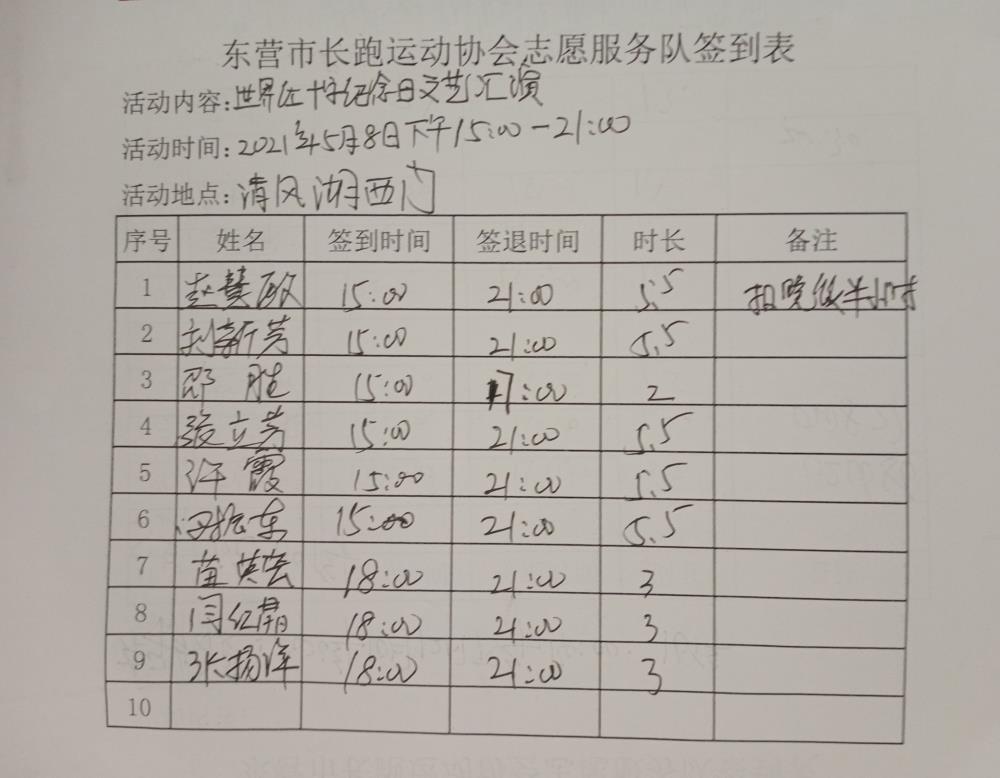 东营市长跑运动协会志愿服务队签到表
活动内容:世界红十字纪念日文艺汇演
活动时间:2021年5月8日下午15:00-21:00
活动地点:清风湖西门
序号 姓名 签到时间 签退时间 时长 备注
1 赵慧 15:00 21:00 5.5 扣晚饭半小时
2 刘新芳 15:00 21:00 5.5
3 邵胜 15:00 17:00 2
4 张立芳 15:00 21:00 5.5
5 许霞 15:00 21:00 5.5
6 15:00 21:00 5.5
7 苗英 18:00 21:00 3
8 闫红 18:00 21:00 3
9 张杨洋 18:00 21:00 3
10